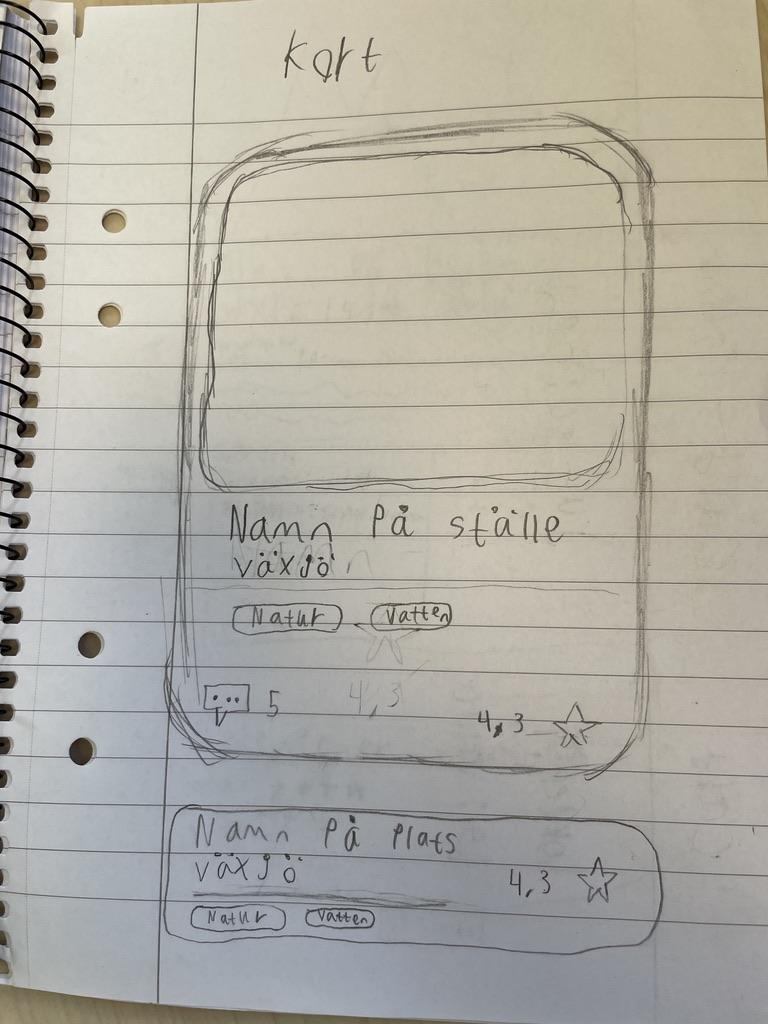 Kort
Namn på ställe
växjö
Natur Vatten
5 4,3
4,3
Namn på plats
växjö
4,3
Natur Vatten